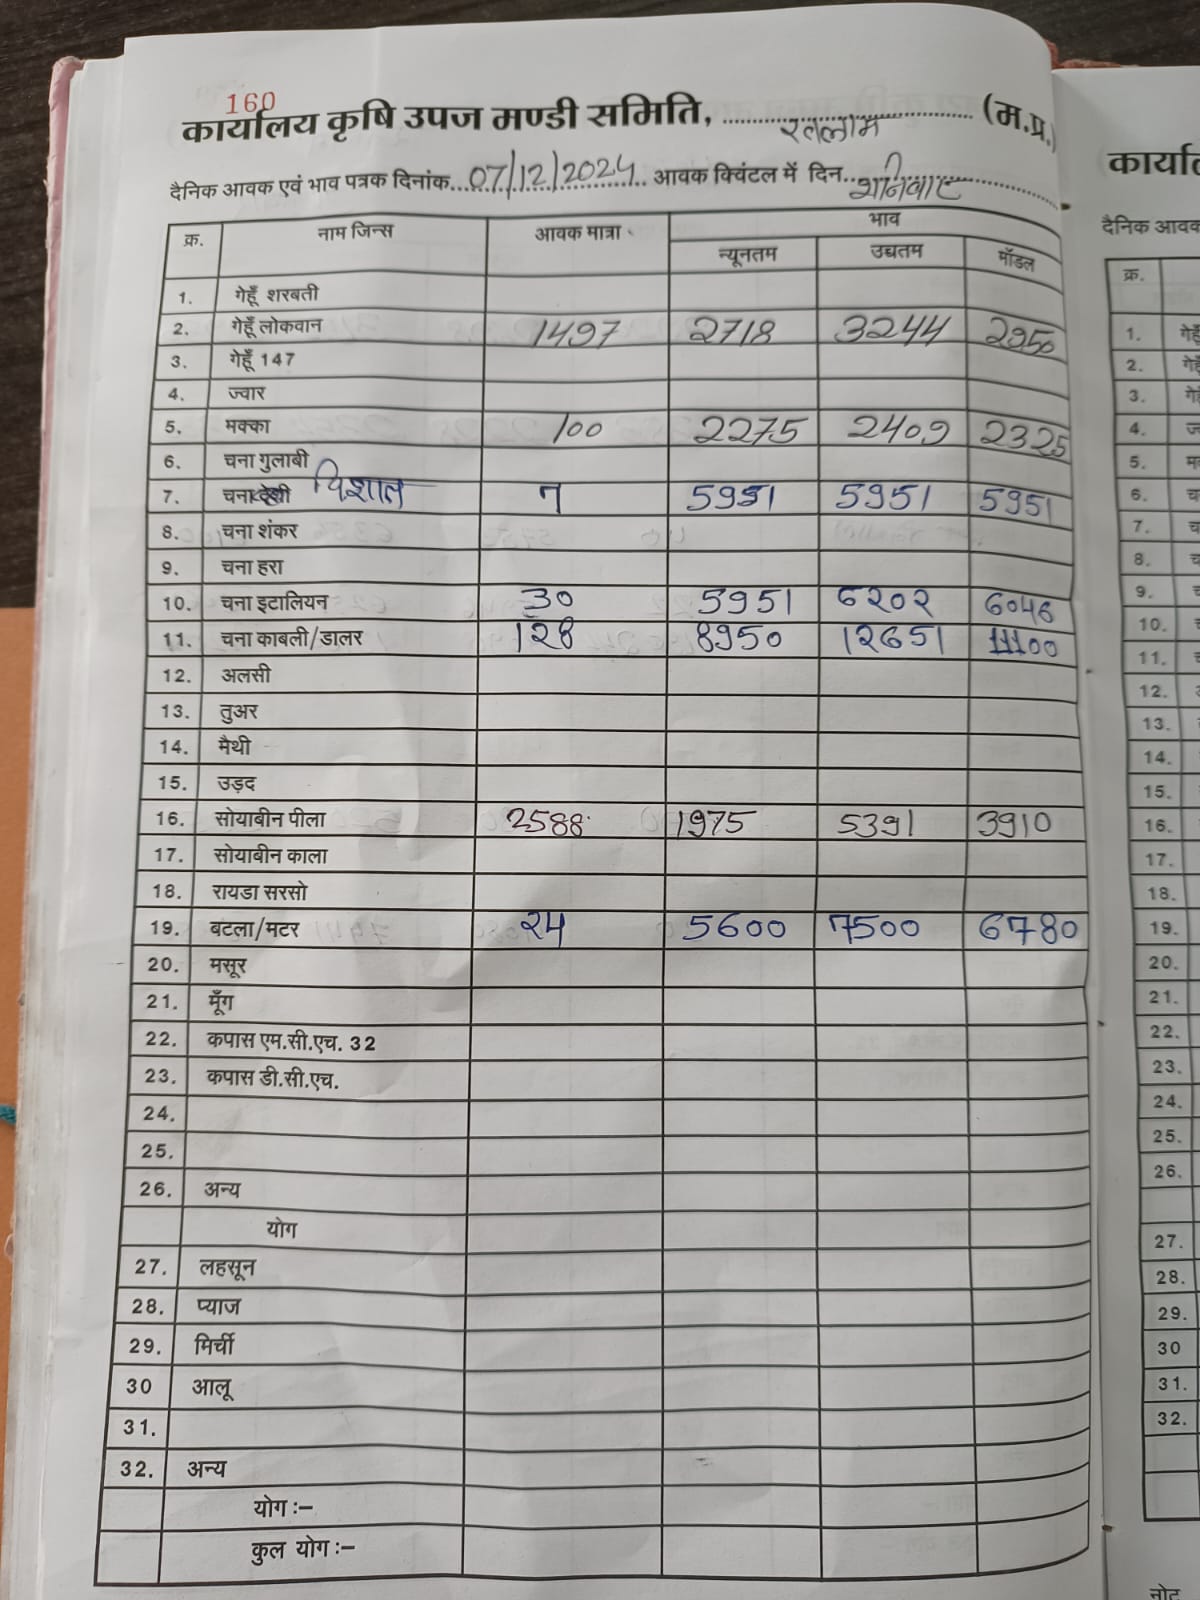 160
कार्यालय कृषि उपज मण्डी समिति, रतलाम (म.प्र.)
दैनिक आवक एवं भाव पत्रक दिनांक 07/12/2024 आवक क्विंटल में दिन शनिवार
क्र. नाम जिन्स आवक मात्रा भाव
न्यूनतम उच्चतम मॉडल
1. गेहूँ शरबती
2. गेहूँ लोकवान 1497 2718 3244 2950
3. गेहूँ 147
4. ज्वार
5. मक्का 100 2275 2409 2325
6. चना गुलाबी
7. चना देशी विशाल 7 5951 5951 5951
8. चना शंकर
9. चना हरा
10. चना इटालियन 30 5951 6202 6046
11. चना काबली/डालर 128 8950 12651 11100
12. अलसी
13. तुअर
14. मैथी
15. उड़द
16. सोयाबीन पीला 2588 1975 5391 3910
17. सोयाबीन काला
18. रायडा सरसो
19. बटला/मटर 24 5600 7500 6780
20. मसूर
21. मूँग
22. कपास एम.सी.एच. 32
23. कपास डी.सी.एच.
24.
25.
26. अन्य
योग
27. लहसून
28. प्याज
29. मिर्ची
30 आलू
31.
32. अन्य
योग :–
कुल योग :–
दैनिक आवक
क्र.
1.
2.
3.
4.
5.
6.
7.
8.
9.
10.
11.
12.
13.
14.
15.
16.
17.
18.
19.
20.
21.
22.
23.
24.
25.
26.
27.
28.
29.
30
31.
32.
नोट